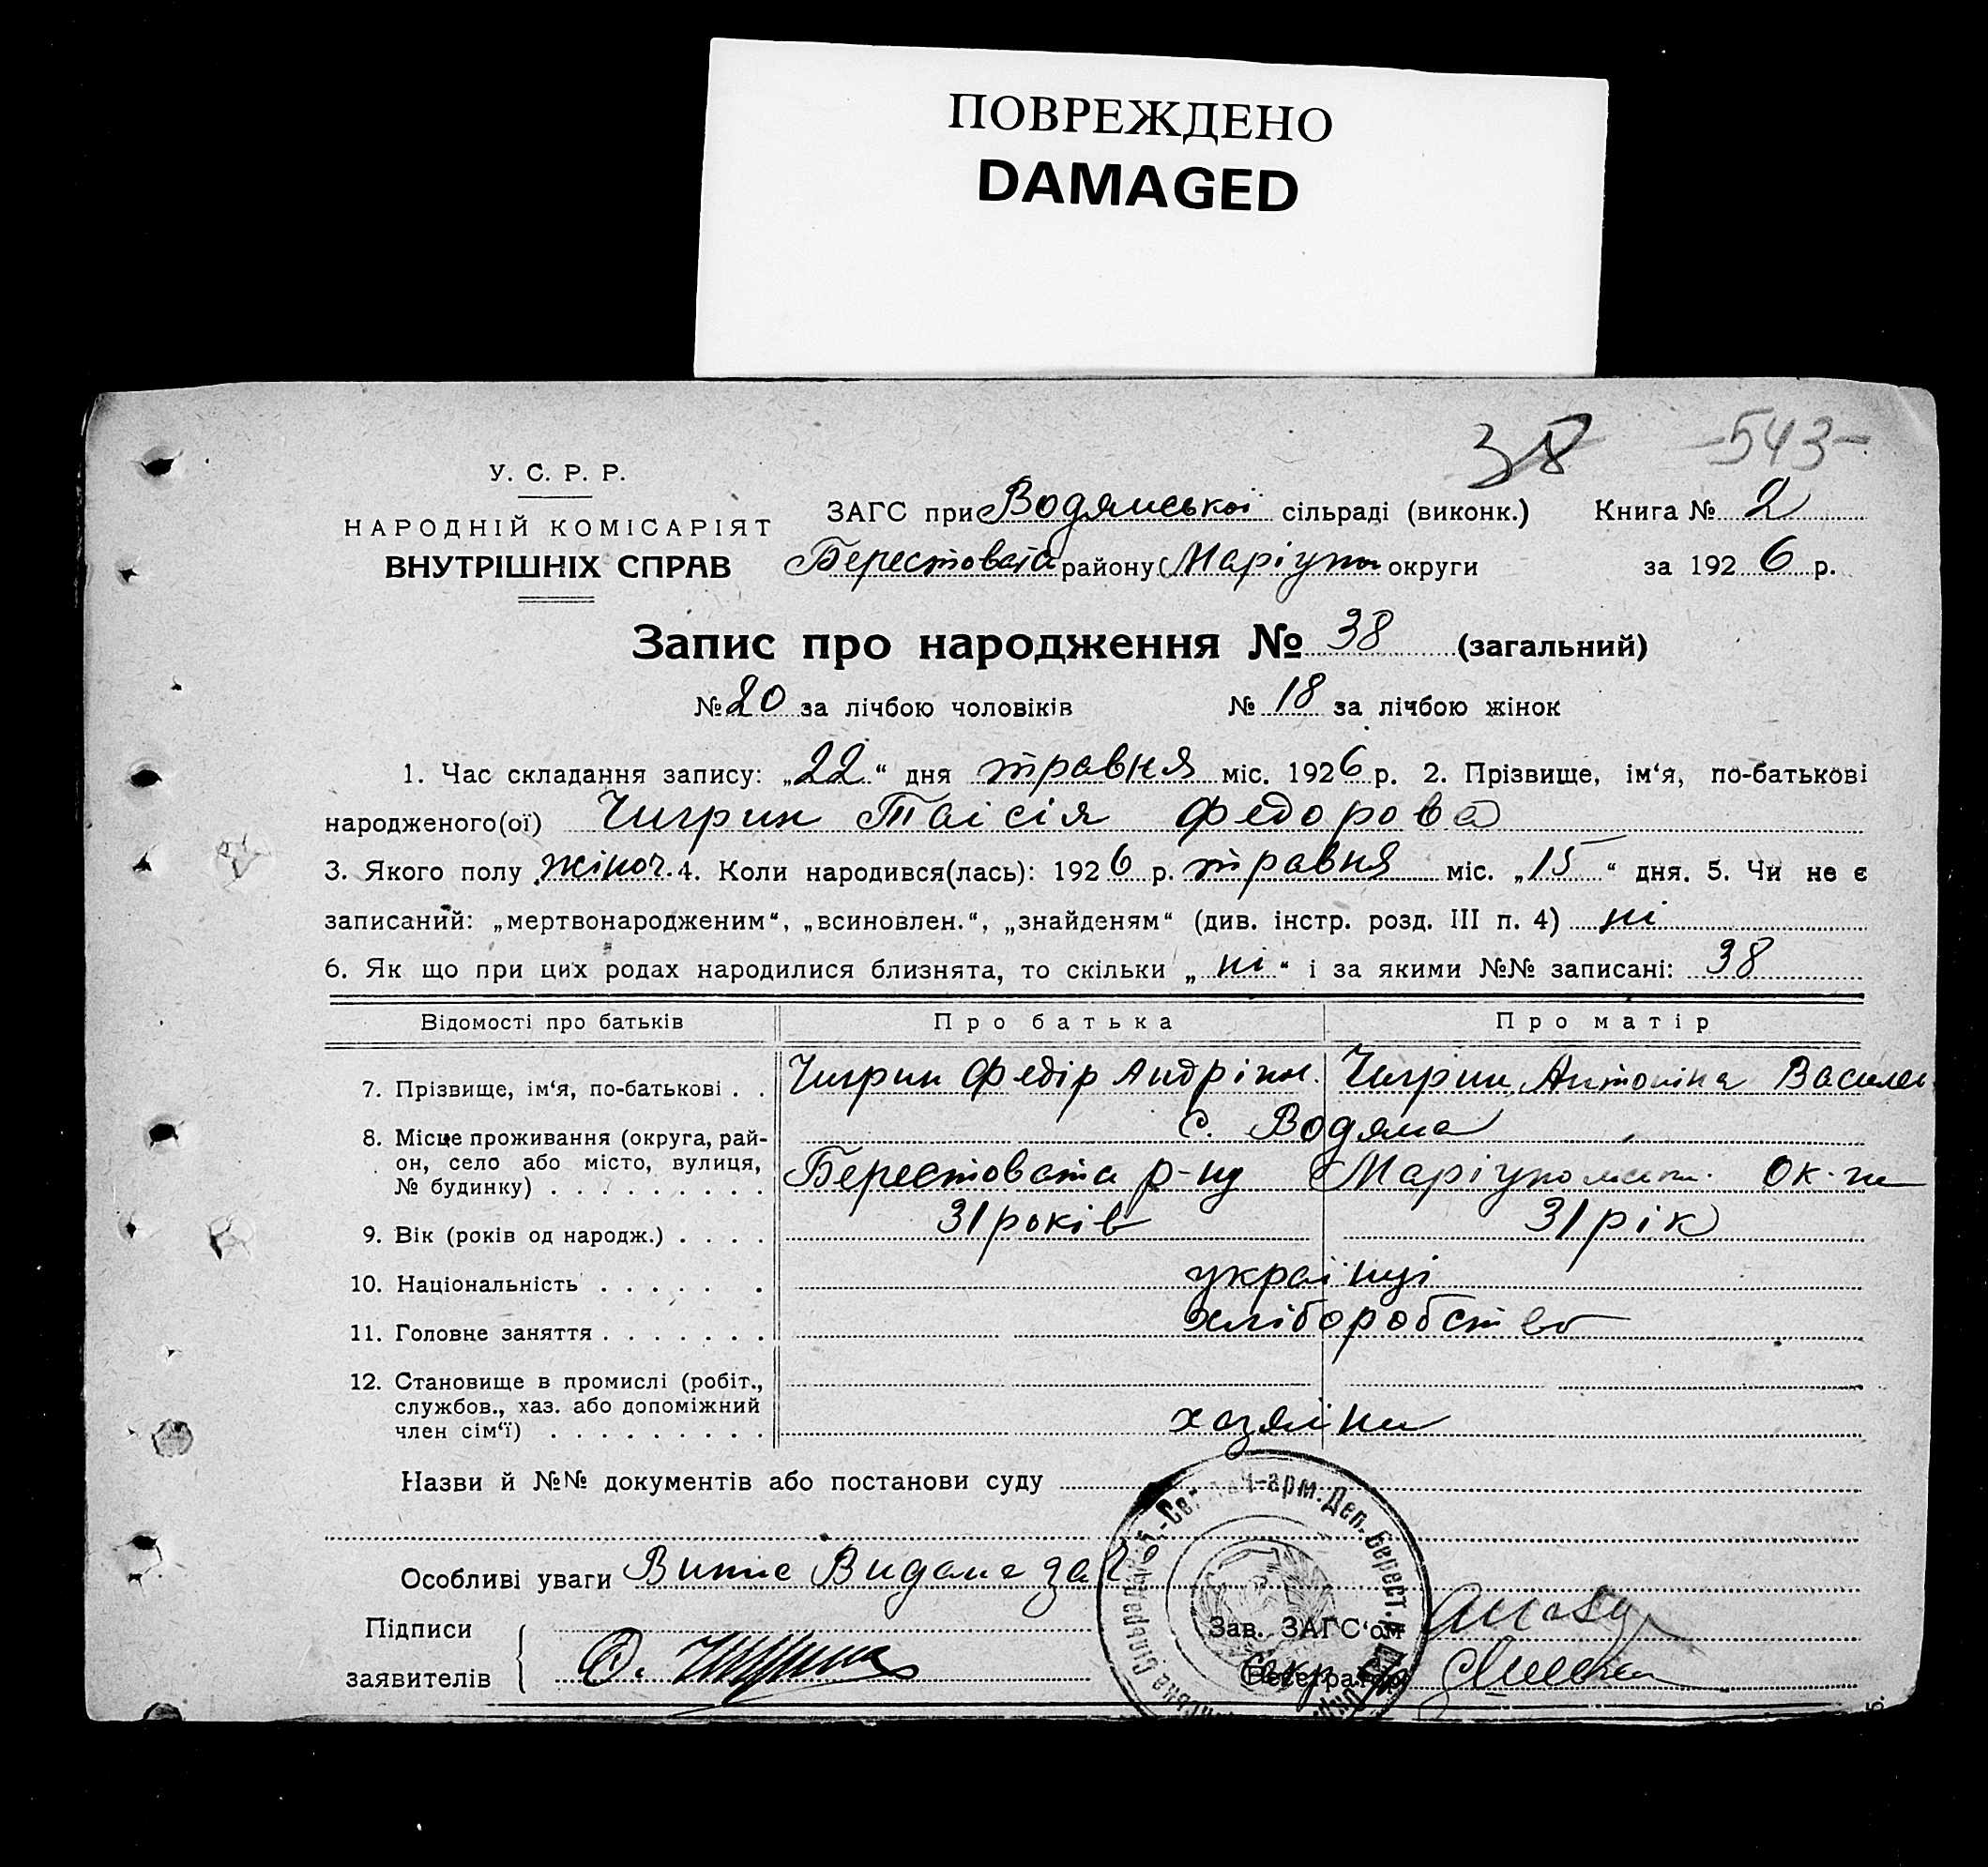 ПОВРЕЖДЕНО
DAMAGED
38 -543-
У. С. Р. Р.
НАРОДНІЙ КОМІСАРІЯТ
ВНУТРІШНІХ СПРАВ
ЗАГС при Водянської сільраді (виконк.) Книга № 2
Берестовата району Маріуп округи за 1926 р.
Запис про народження № 38 (загальний)
№ 20 за лічбою чоловіків № 18 за лічбою жінок
1. Час складання запису: „22“ дня травня міс. 1926 р. 2. Прізвище, ім‘я, по-батькові
народженого(ої) Чигрин Таісія Федорова
3. Якого полу жіноч. 4. Коли народився(лась): 1926 р. травня міс. „15“ дня. 5. Чи не є
записаний: „мертвонародженим“, „всиновлен.“, „знайденям“ (див. інстр. розд. III п. 4) ні
6. Як що при цих родах народилися близнята, то скільки „ні“ і за якими №№ записані: 38
Відомості про батьків Про батька Про матір
7. Прізвище, ім‘я, по-батькові . . Чигрин Федір Андріян. Чигрин Антоніна Василе
8. Місце проживання (округа, рай- с. Водяна
он, село або місто, вулиця,
№ будинку) . . . . . . . . . Берестовата р-ну Маріуполськ. Ок-ги
9. Вік (років од народж.) . . . . 31 років 31 рік
10. Національність . . . . . . українці
11. Головне заняття . . . . . . . хліборобство
12. Становище в промислі (робіт.,
службов., хаз. або допоміжний
член сім‘ї) . . . . . . . . . хазяіни
Назви й №№ документів або постанови суду
Особливі уваги Випис Видана за №
Підписи Зав. ЗАГС‘ом
заявителів Ф. Чигрин Секр